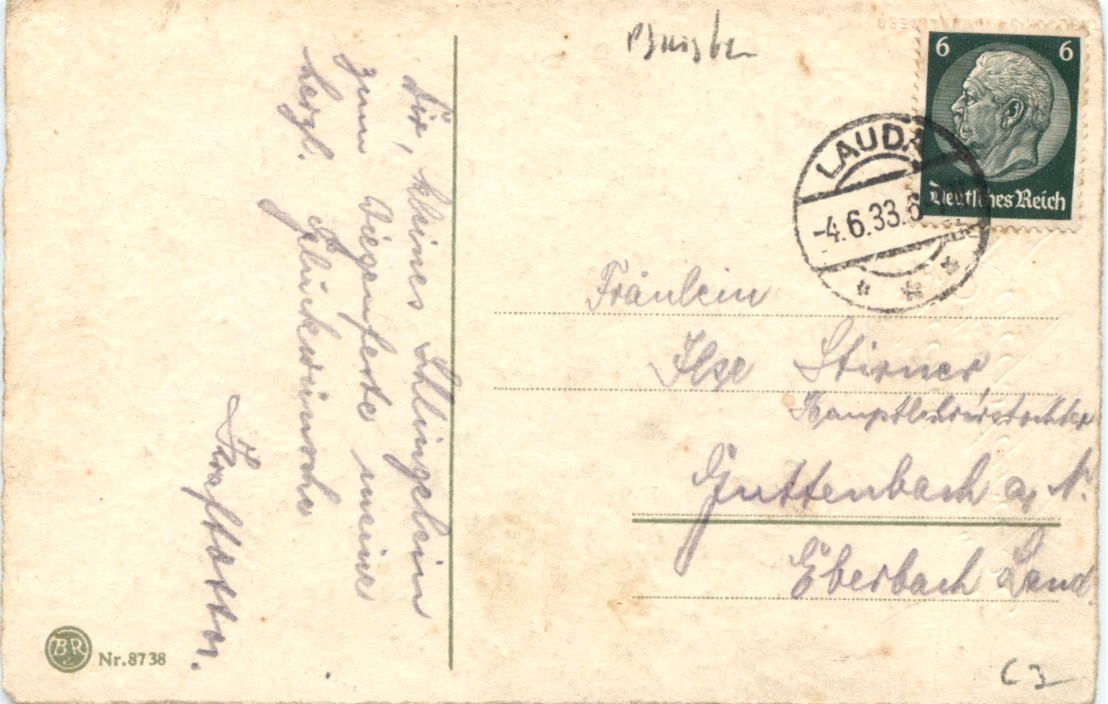 Dir, kleines Schlingelein
zum Wiegenfeste meine
herzl. Glückwünsche
Nr. 8738
BR
Pfingsten
6 6
Deutsches Reich
LAUDA
-4.6.33.6
Fräulein
Ilse Stirner,
Hauptlehrerstochter
Guttenbach a. N.
Eberbach Land.